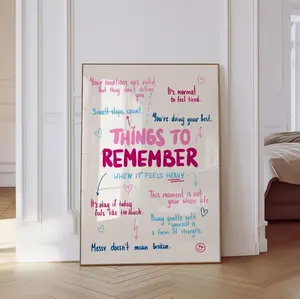 Your emotions are valid,
but they don't define
you.
It's normal
to feel tired.
Small steps count.
You're doing your best.
THINGS TO
REMEMBER
WHEN IT FEELS HEAVY
This moment is not
your whole life.
It's okay if today
feels like too much.
Being gentle with
yourself is a
form of strength.
Messy doesn't mean broken.